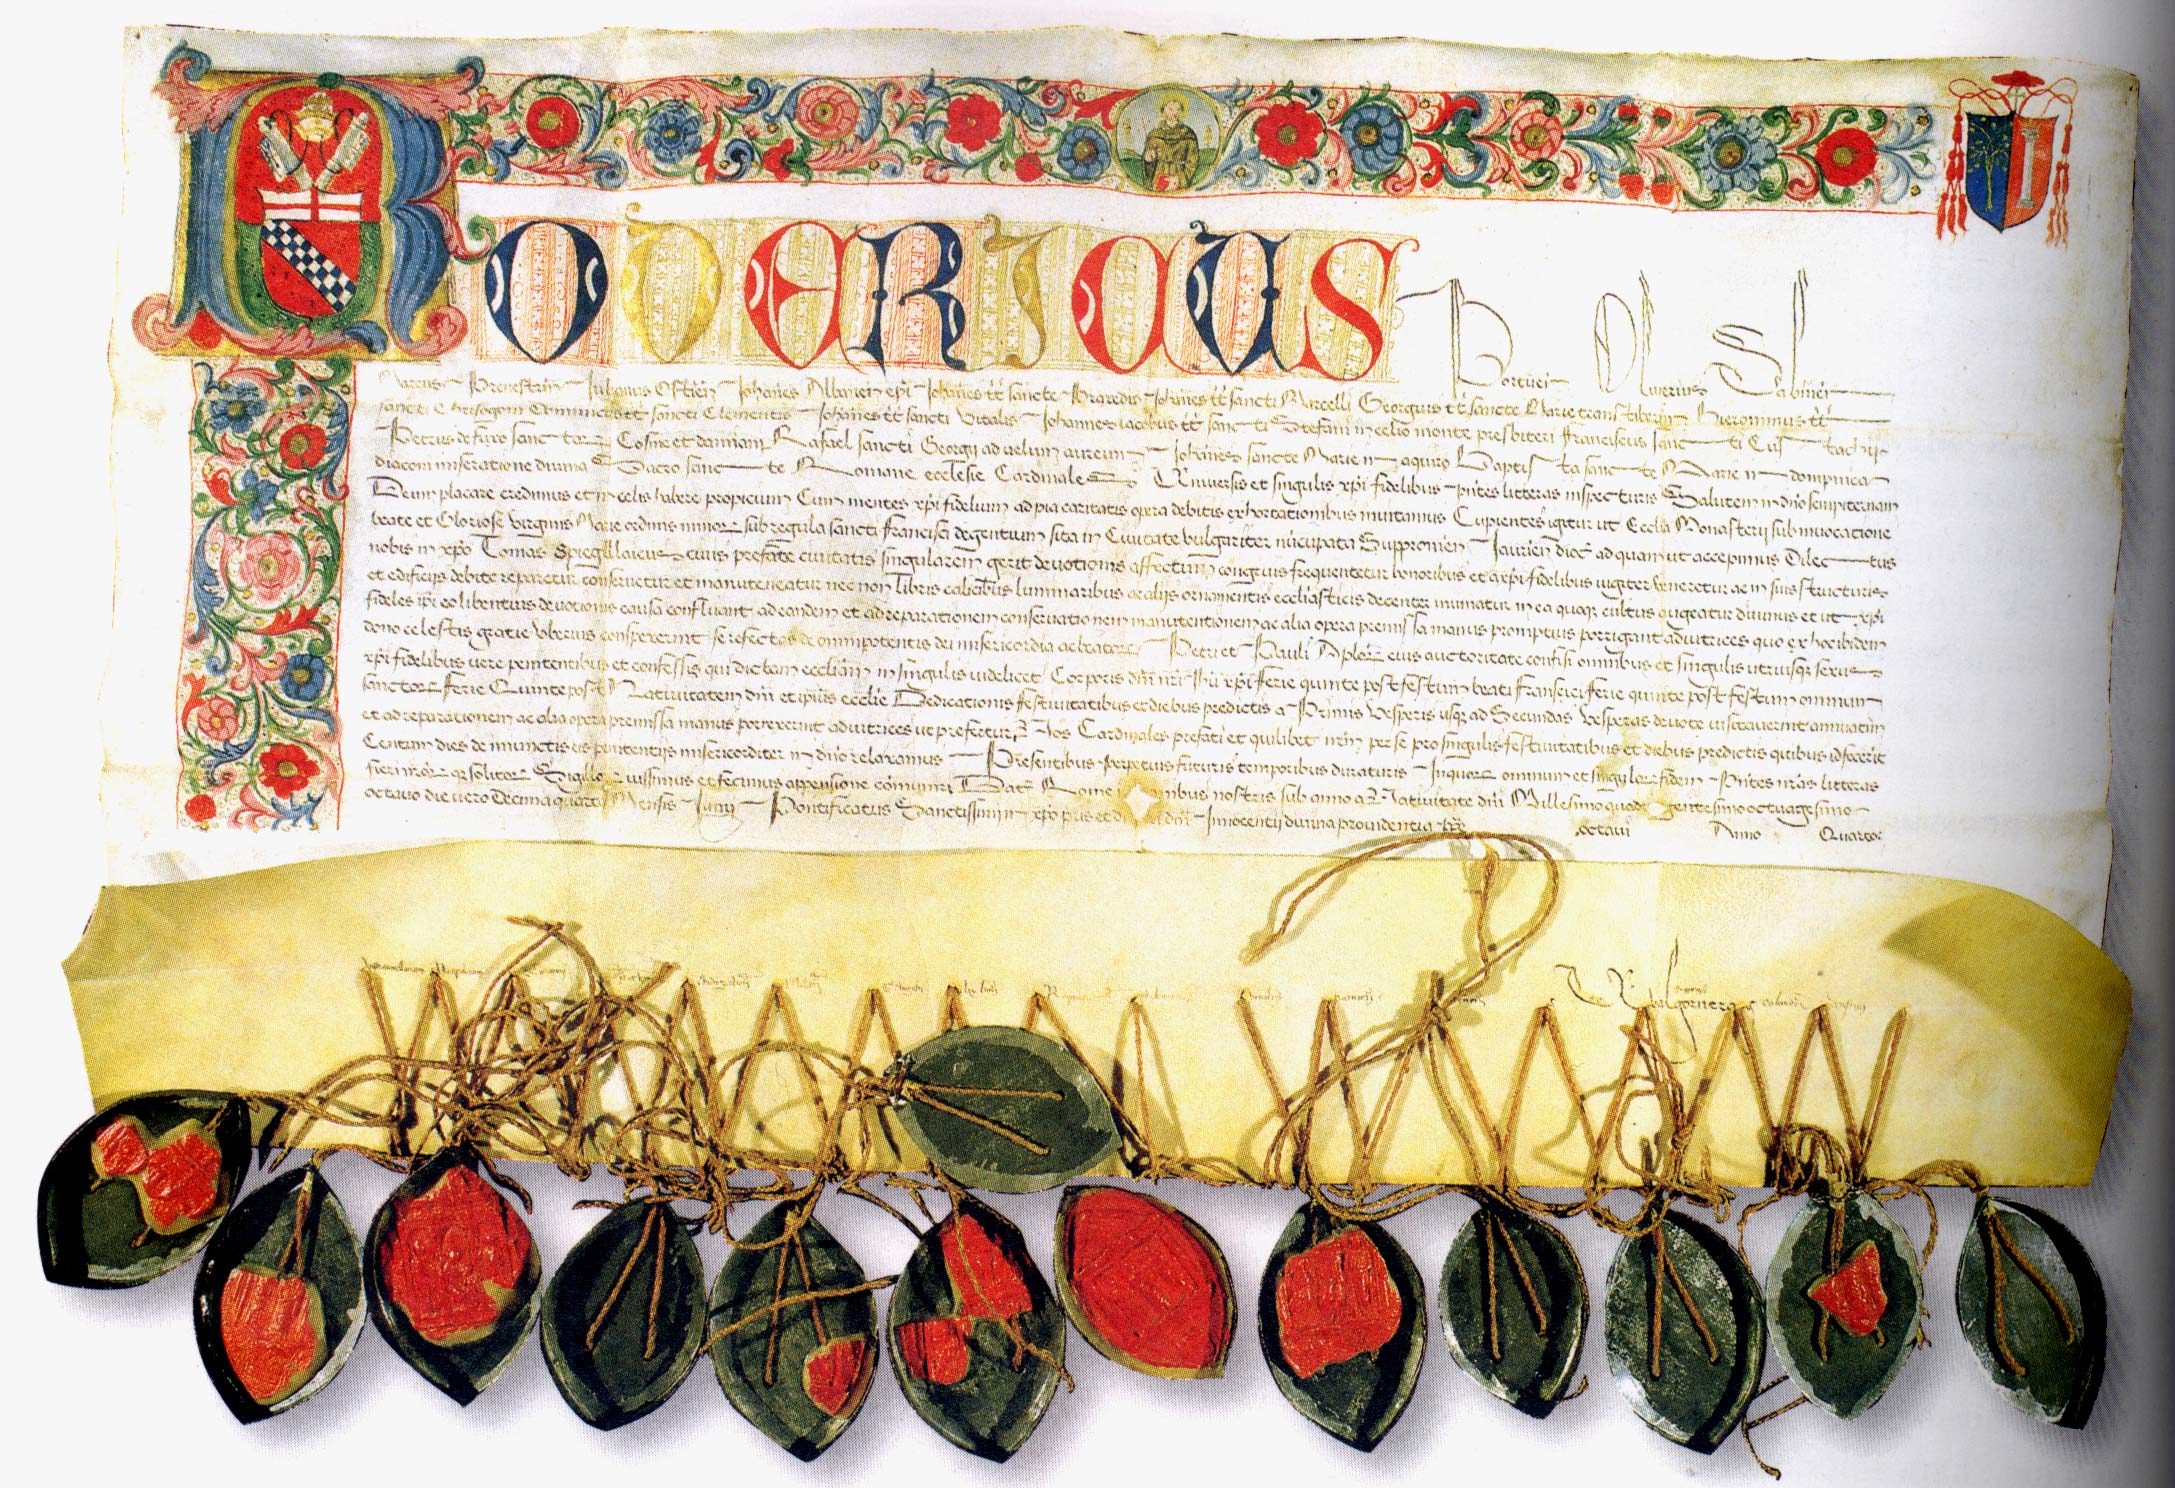 RODERICUS Portuen Oliverius Sabinen
Marcus Prenestrin Julianus Ostien Johannes Albanen epi Johannes tt sancte Praxedis Johannes tt sancti Marcelli Georgius tt sancte Marie transtiberim Hieronimus tt
sancti Grisogoni Dominicus tt sancti Clementis Johannes tt sancti Vitalis Johannes Jacobus tt sancti Stefani in celio monte presbiteri Franciscus sancti Eustachii
Petrus de fuxo sanctor Cosme et damiani Rafael sancti Georgii ad velum aureum Johannes sancte Marie in aquiro Baptista sancte Marie in dompnica
diaconi miseratione divina Sacro sancte Romane ecclesie Cardinales Universis et singulis xpi fidelibus pntes litteras inspecturis Salutem in dno sempiternam
Deum placare credimus et in celis habere propicium Cum mentes xpi fidelium ad pia caritatis opera debitis exhortationibus invitamus Cupientes igitur ut Ecclia Monasterij sub invocatione
beate et Gloriose virginis Marie ordinis minor sub regula sancti Francisci degentium sita in Civitate vulgariter nucupata Suppronien Jaurien dioc ad quam ut accepimus Dilectus
nobis in xpo Tomas civis prefate civitatis singularem gerit devotionis affectum congruis frequentetur honoribus et a xpi fidelibus iugiter veneretur ac in suis structuris
et edificijs debite reparetur conservetur et manuteneatur nec non libris calicibus luminaribus ac alijs ornamentis ecclesiasticis decenter muniatur in ea quoq cultus augeatur divinus et ut xpi
fideles ipi eo libentius devotionis causa confluant ad eandem et ad reparationem conservationem manutentionem ac alia opera premissa manus promptius porrigant adiutrices quo ex hoc ibidem
dono celestis gratie uberius conspexerint se refectos de omnipotentis dei misericordia ac beator Petri et Pauli Aplor eius auctoritate confisi omnibus et singulis utriusq sexus
xpi fidelibus vere penitentibus et confessis qui dictam eccliam in singulis videlicet Corporis dni nri Jhu xpi ferie quinte post festum beati Francisci ferie quinte post festum omnium
sanctor ferie Quinte post Nativitatem dni et ipius ecclie Dedicationis festivitatibus et diebus predictis a Primis Vesperis usq ad Secundas vesperas devote visitaverint annuatim
et ad reparationem ac alia opera premissa manus porrexerint adiutrices ut prefertur Nos Cardinales prefati et quilibet nrm per se pro singulis festivitatibus et diebus predictis quibus id fecerit
Centum dies de iniunctis eis penitentijs misericorditer in dno relaxamus Presentibus perpetuis futuris temporibus duraturis In quor omnium et singlor fidem pntes nras litteras
fieri nror q solitor Sigillor iussimus et fecimus appensione comuniri Dat Rome nostris sub anno a Nativitate dni Millesimo octuagesimo
octavo die vero Decimaquarta Mensis Junij Pontificatus Sanctissimi in xpo pris et Innocentij divina providentia ppe octavi Anno Quarto